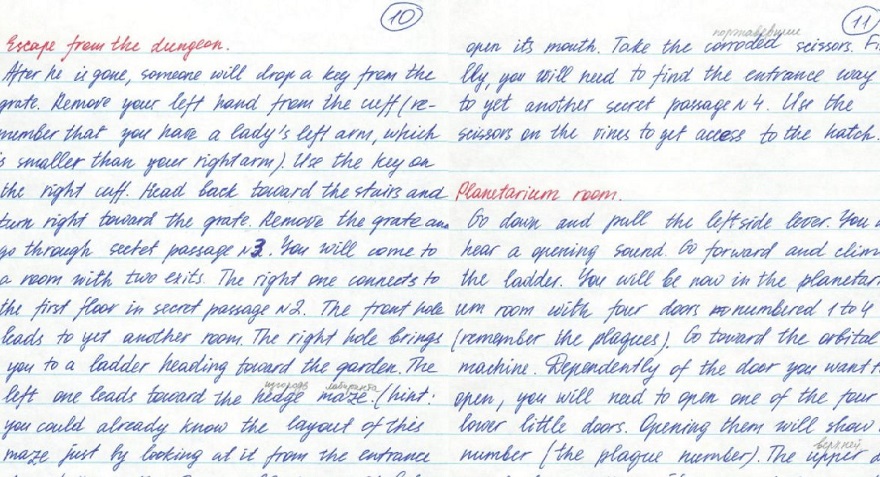 10
Escape from the dungeon.
After he is gone, someone will drop a key from the
grate. Remove your left hand from the cuff (re-
member that you have a lady's left arm, which
is smaller than your right arm). Use the key on
the right cuff. Head back toward the stairs and
turn right toward the grate. Remove the grate and
go through secret passage N3. You will come to
a room with two exits. The right one connects to
the first floor in secret passage N2. The front hole
leads to yet another room. The right hole brings
you to a ladder heading toward the garden. The
изгородь лабиринта
left one leads toward the hedge maze. (hint:
you could already know the layout of this
maze just by looking at it from the entrance
11
поржавевшие
open its mouth. Take the corroded scissors. Fi
lly, you will need to find the entrance way
to yet another secret passage N4. Use the
scissors on the vines to get access to the hatch.
Planetarium room.
Go down and pull the left side lever. You
hear a opening sound. Go forward and clim
the ladder. You will be now in the planetari
um room with four doors numbered 1 to 4
(remember the plaques). Go toward the orbital
machine. Dependently of the door you want t
open, you will need to open one of the four
lower little doors. Opening them will show
верхней
number (the plaque number). The upper d